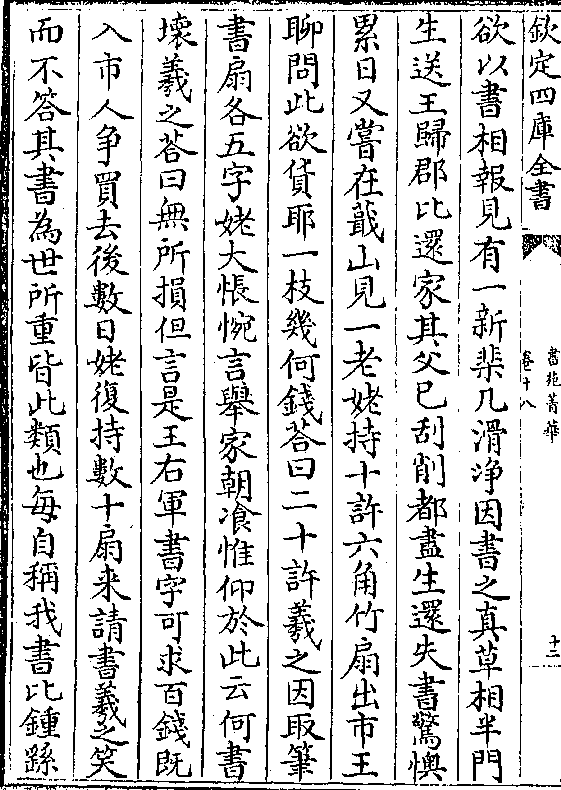 欽定四庫全書
書苑菁華
卷十八
十二
欲以書相報見有一新棐几滑净因書之真草相半門
生送王歸郡比還家其父已刮削都盡生還失書驚懊
累日又嘗在蕺山見一老姥持十許六角竹扇出市王
聊問此欲貨耶一枝幾何錢荅曰二十許羲之因取筆
書扇各五字姥大悵惋言舉家朝飡惟仰於此云何書
壞羲之荅曰無所損但言是王右軍書字可求百錢既
入市人争買去後數日姥復持數十扇来請書羲之笑
而不答其書為世所重皆此類也每自稱我書比鍾繇